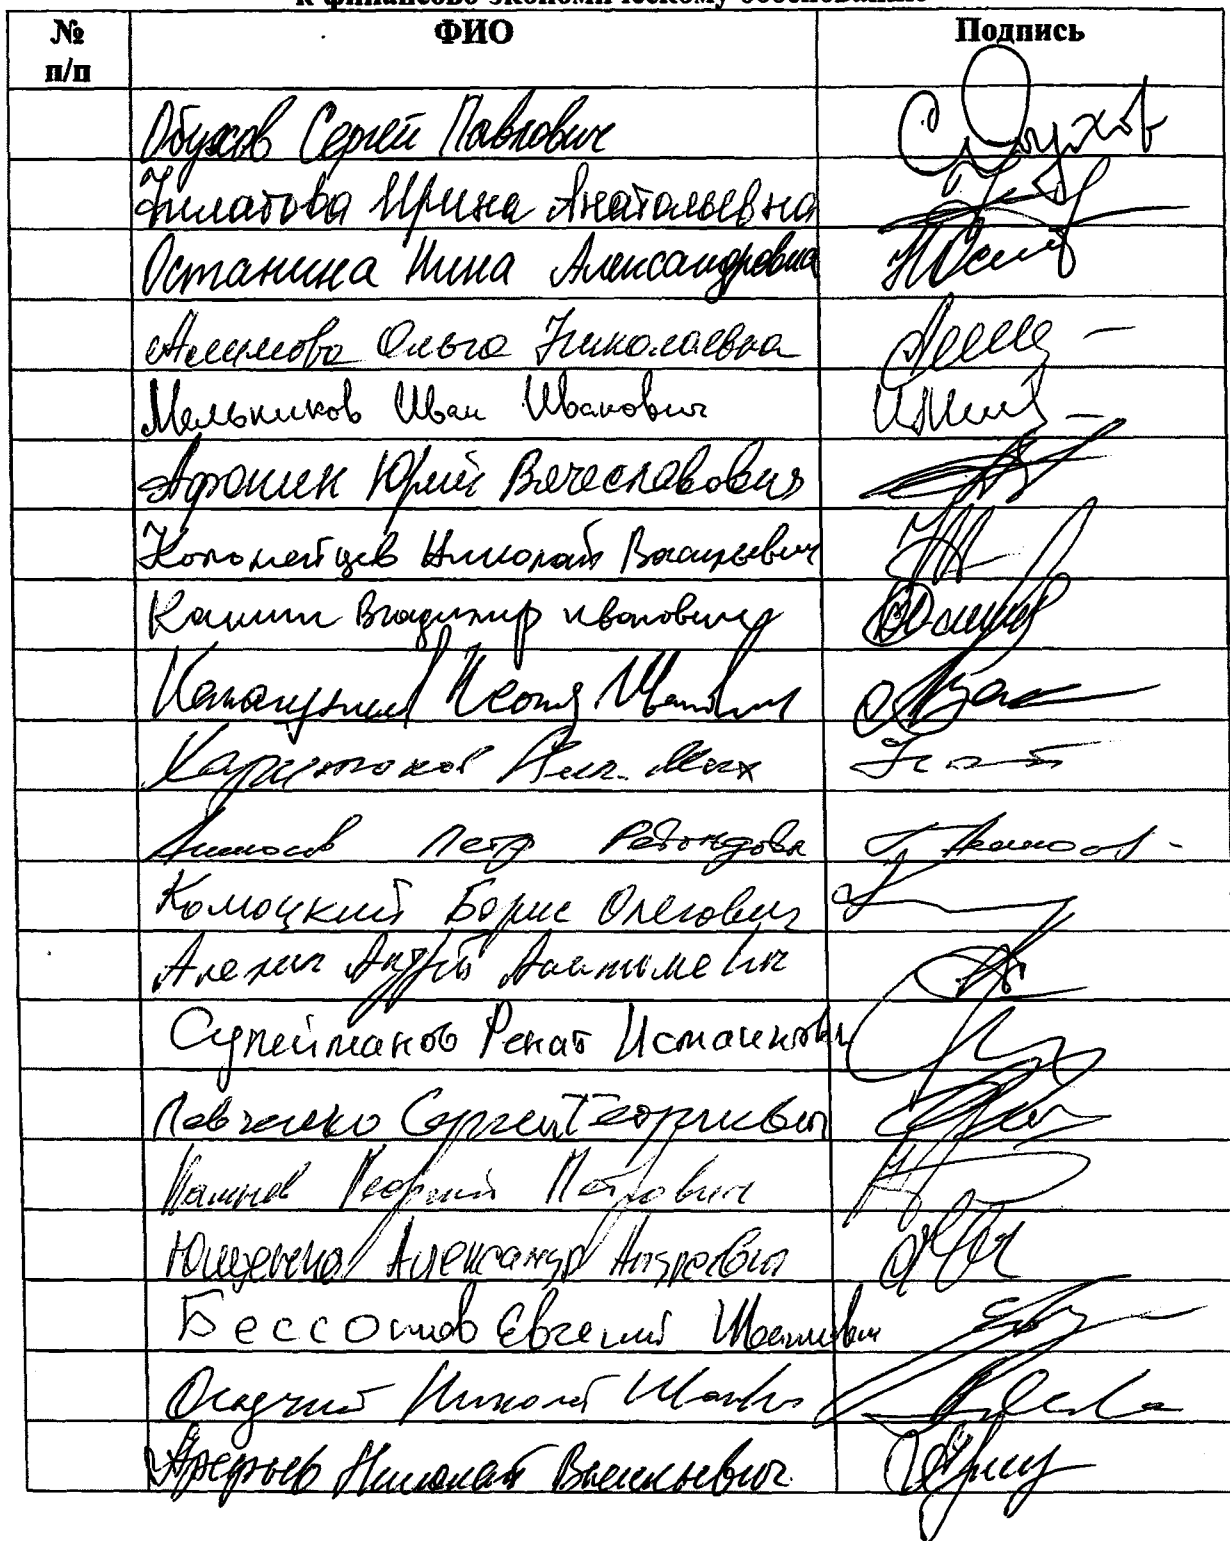 к финансово-экономическому обоснованию
№ п/п ФИО Подпись
Обухов Сергей Павлович С Обухов
Филатова Ирина Анатольевна
Останина Нина Александровна
Алимова Ольга Николаевна
Мельников Иван Иванович
Афонин Юрий Вячеславович
Коломейцев Николай Васильевич
Кашин Владимир Иванович
Калашников Леонид Иванович
Харитонов Ник. Мих
Аммосов Петр Револьдович П Аммосов
Комоцкий Борис Олегович
Алехин Андрей Анатольевич
Сулейманов Ренат Исмаилович
Левченко Сергей Георгиевич
Камнев Георгий Петрович
Ющенко Александр Андреевич
Бессонов Евгений Иванович
Осадчий Николай Иванович
Арефьев Николай Васильевич